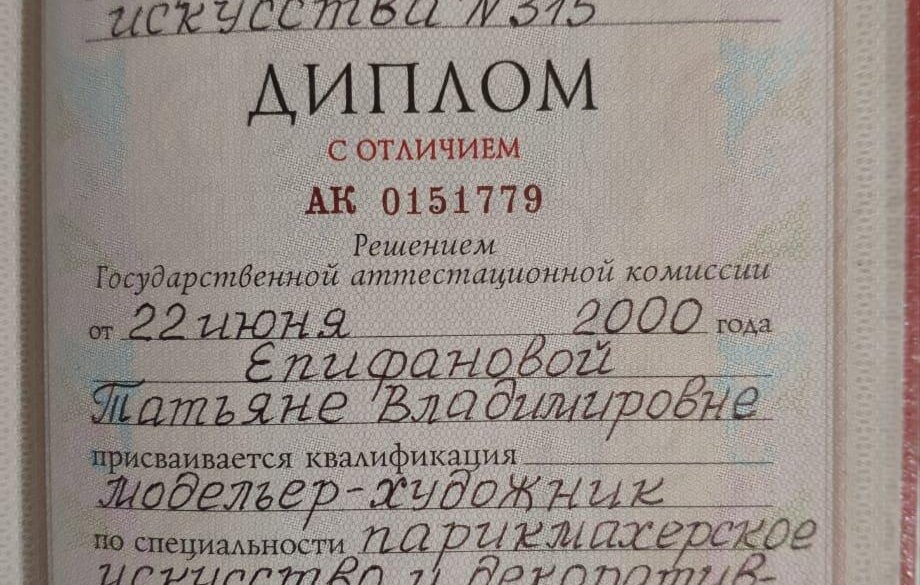 искусства N 315
ДИПЛОМ
С ОТЛИЧИЕМ
АК 0151779
Решением
Государственной аттестационной комиссии
от 22 июня 2000 года
Епифановой
Татьяне Владимировне
присваивается квалификация
модельер-художник
по специальности парикмахерское
искусство и декоратив-